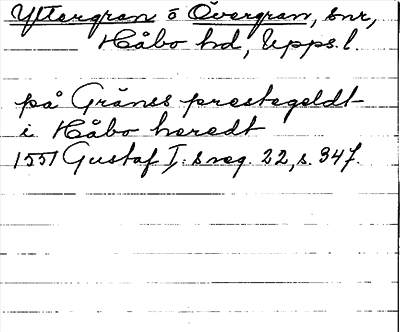 Yttergran o Övergran, snr,
Håbo hd, Upps. l.
på Gränss prestegeldt
i Håbo heredt
1551 Gustaf I:s reg. 22, s. 347.